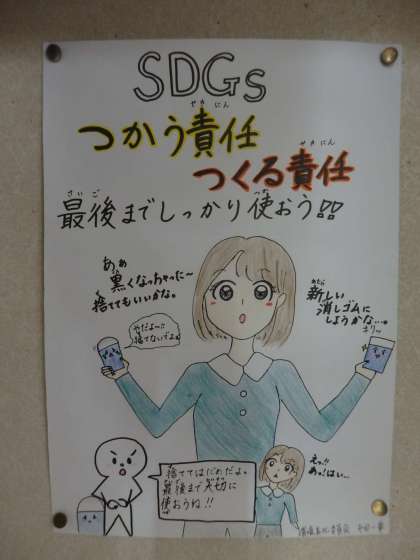 SDGs
つかう責任
つくる責任
最後までしっかり使おう!!
あぁ
黒くなっちゃった〜
捨ててもいいかな。
新しい
消しゴムに
しようかな…。
やだよ〜!!
捨てないでよぉ
捨ててはだめだよ。
最後まで大切に
使おうね!!
えっ!!
あっ!はい…